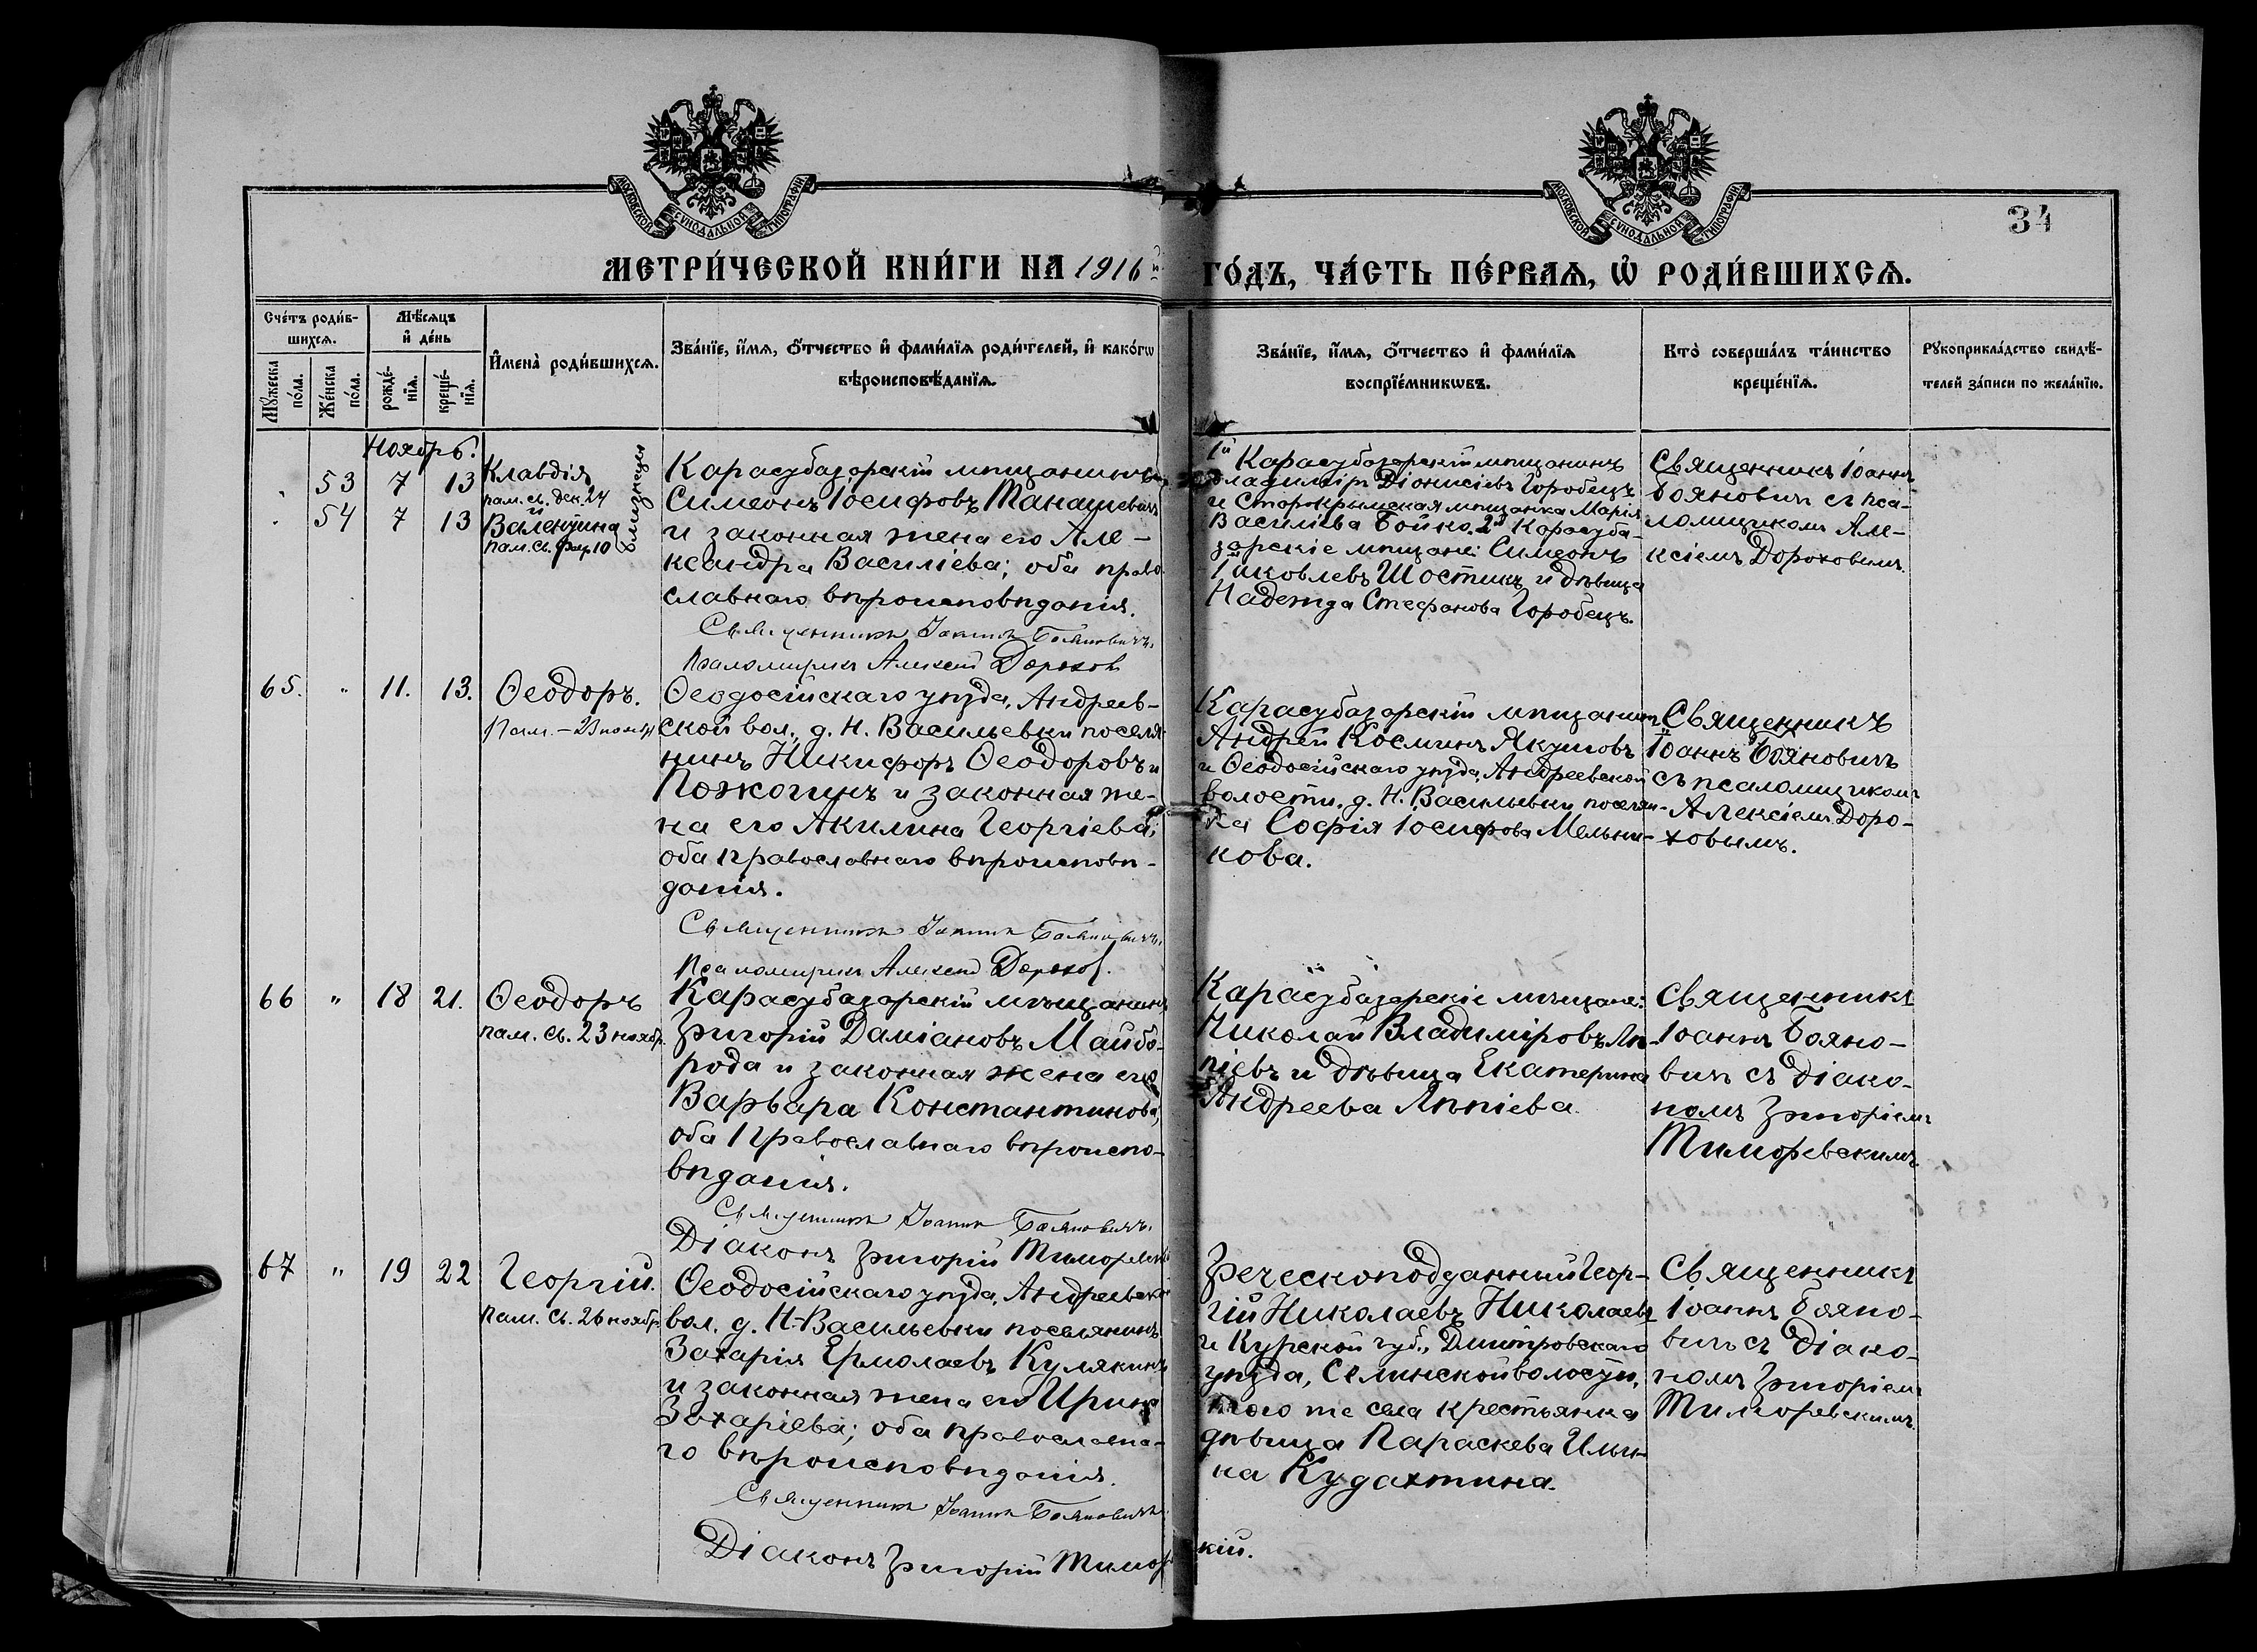 МОСКОВСКОЙ СѴНОДАЛЬНОЙ ТИПОГРАФІИ
МОСКОВСКОЙ СѴНОДАЛЬНОЙ ТИПОГРАФІИ
34
МЕТРИ́ЧЕСКОЙ КНИ́ГИ НА 1916 й ГО́ДЪ, ЧА́СТЬ ПЕ́РВАѦ, Ѡ РОДИ́ВШИХСѦ.
Сче́тъ роди́в-
шихсѧ.
Мꙋ́жеска по́ла.
Же́нска по́ла.
Мѣ́сѧцъ
и҆ де́нь
рожде́-
нїѧ.
креще́-
нїѧ.
И҆мена̀ роди́вшихсѧ.
Зва́нїе, и҆́мѧ, ѻ҆́тчество и҆ фами́лїѧ роди́телей, и҆ како́гѡ
вѣроисповѣ́данїѧ.
Зва́нїе, и҆́мѧ, ѻ҆́тчество и҆ фами́лїѧ
воспрїе́мникѡвъ.
Кто̀ соверша́лъ та́инство
креще́нїѧ.
Рꙋкоприкла́дство свидѣ́-
телей за́писи по жела́нїю.
Ноябрь.
53 7 13
54 7 13
Клавдія
пам. св. дек. 24
и
Валентина
пам. св. февр. 10
близнецы
Карасубазарскій мѣщанинъ
Симеонъ Іосифовъ Танашевичъ
и законная жена его Але-
ксандра Василіева; оба право
славнаго вѣроисповѣданія.
Священникъ Іоаннъ Бояновичъ.
Псаломщикъ Алексей Дорохов
1й Карасубазарскій мѣщанинъ
Владиміръ Діонисіевъ Горобецъ
и Старокрымская мѣщанка Марія
Василіева Бойко. 2й Карасуба-
зарскіе мѣщане: Симеонъ
Іаковлевъ Шостикъ и дѣвица
Надежда Стефанова Горобецъ.
Священникъ Іоаннъ
Бояновичъ съ пса-
ломщикомъ Але-
ксіемъ Дороховымъ.
65. " 11. 13.
Ѳеодоръ.
Пам. – 23 ноябр
Ѳеодосійскаго уѣзда, Андреев-
ской вол., д. Н. Васильевки поселя
нинъ Никифоръ Ѳеодоровъ
Пожогинъ и законная же-
на его Акилина Георгіева;
оба православнаго вѣроисповѣ-
данія.
Священникъ Іоаннъ Бояновичъ.
Псаломщикъ Алексей Дорохов.
Карасубазарскій мѣщанинъ
Андрей Косминъ Якушовъ
и Ѳеодосійскаго уѣзда, Андреевской
волости, д. Н. Васильевки поселян-
ка Софія Іосифова Мельни-
кова.
Священникъ
Іоаннъ Бояновичъ
съ псаломщикомъ
Алексіемъ Доро-
ховымъ.
66 " 18 21.
Ѳеодоръ
пам. св. 23 ноябр.
Карасубазарскій мѣщанинъ
Григорій Даміановъ Майбо-
рода и законная жена его
Варвара Константинова,
оба православнаго вѣроиспо-
вѣданія.
Священникъ Іоаннъ Бояновичъ.
Діаконъ Григорій
Карасубазарскіе мѣщане:
Николай Владиміровъ Ап-
піевъ и дѣвица Екатерина
Андреева Аппіева.
Священникъ
Іоаннъ Бояно-
вичъ съ діако-
номъ Григоріемъ
67 " 19 22
Георгій.
пам. св. 26 ноябр
Ѳеодосійскаго уѣзда, Андреевской
вол. д. Н-Васильевки поселянинъ
Захарія Ермолаевъ Кулякинъ
и законная жена его Ирина
Захаріева; оба православна-
го вѣроисповѣданія.
Священникъ Іоаннъ Бояновичъ
Діаконъ Григорій
кій.
Греческоподданный Геор-
гій Николаевъ Николаевъ
и Курской губ., Дмитровскаго
уѣзда, волости,
того же села крестьянка
дѣвица Параскева Ильи-
на Кудахтина.
Священникъ
Іоаннъ Бояно-
вичъ съ діако-
номъ Григоріемъ